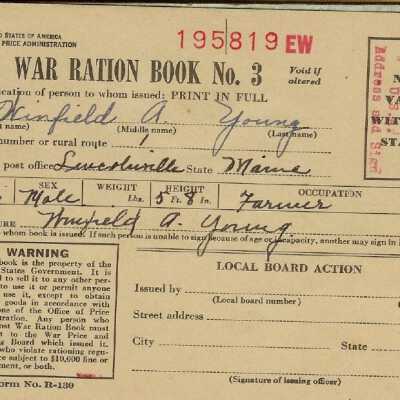 STATES OF AMERICA
PRICE ADMINISTRATION
195819 EW
WAR RATION BOOK No. 3
Void if
altered
of person to whom issued: PRINT IN FULL
Winfield A. Young
name) (Middle name) (Last name)
number or rural route 1
post office Lincolnville State Maine
SEX WEIGHT HEIGHT OCCUPATION
Male Lbs. 5 Ft. 8 In. Farmer
Winfield A. Young
whom book is issued. If such person is unable to sign because of age or incapacity, another may sign in
WARNING
book is the property of the
States Government. It is
to sell it to any other per-
to use it or permit anyone
use it, except to obtain
goods in accordance with
of the Office of Price
Any person who
War Ration Book must
to the War Price and
Board which issued it.
who violate rationing regu-
subject to $10,000 fine or
or both.
Form No. R-130
LOCAL BOARD ACTION
Issued by
(Local board number)
Street address
City State
(Signature of issuing officer)
N
VA
WIT
STA
Address and